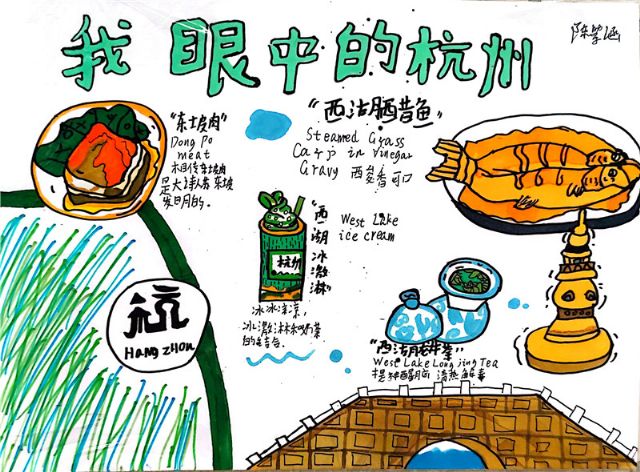 我眼中的杭州
"东坡肉"
Dong Po
meat
相传东坡肉
是大诗人苏东坡
发明的.
"西湖醋鱼"
Steamed Grass
Carp in Vinegar
Gravy 香可口
"西湖冰激淋"
West Lake
ice cream
杭州
冰冰凉凉,
的结合.
杭
Hang zhou
"西湖龙井茶"
West Lake Long jing Tea
提神醒脑 清热解毒